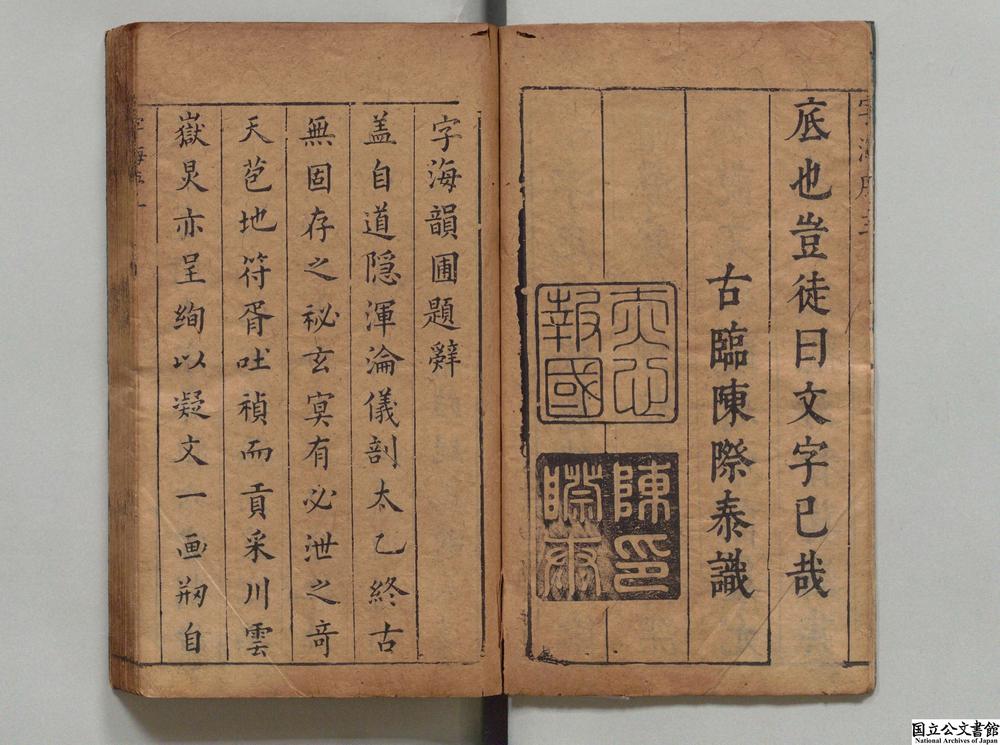 底也豈徒曰文字已哉
古臨陳際泰識
報國
陳印際泰
字海韻圃題辭
盖自道隱渾淪儀剖太乙終古
無固存之祕玄㝠有必泄之竒
天苞地符胥吐禎而貢采川雲
嶽炅亦呈絢以凝文一画剏自
国立公文書館
National Archives of Japan